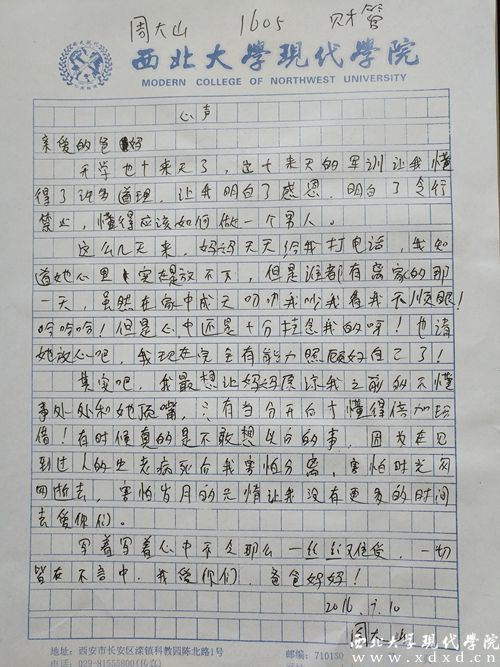 周大山 1605 财管
西北大學現代學院
MODERN COLLEGE OF NORTHWEST UNIVERSITY
心声
亲爱的爸妈
开学也十来天了，这十来天的军训让我懂
得了许多道理，让我明白了感恩，明白了令行
禁止，懂得应该如何做一个男人。
这么几天来，妈妈天天给我打电话，我知
道她心里实在是放不下，但是谁都有离家的那
一天，虽然在家中成天叨叨我吵我看我不顺眼！
哈哈哈！但是心中还是十分挂念我的呀！也请
她放心吧，我现在完全有能力照顾好自己了！
其实吧，我最想让妈妈原谅我之前的不懂
事处处和她顶嘴，只有当分开的才懂得倍加珍
惜！有时候真的是不敢想以后的事，因为在见
到过人的生老病死后我害怕分离，害怕时光匆
匆逝去，害怕岁月的无情让我没有更多的时间
去爱你们。
写着写着心中不免那么一丝丝难受，一切
皆在不言中，我爱你们，爸爸妈妈！
2016.9.10
周大山
地址：西安市长安区滦镇科教园陈北路1号
邮编：710130
电话：029-81555800(传真)
西北大學現代學院
www.xdxd.cn